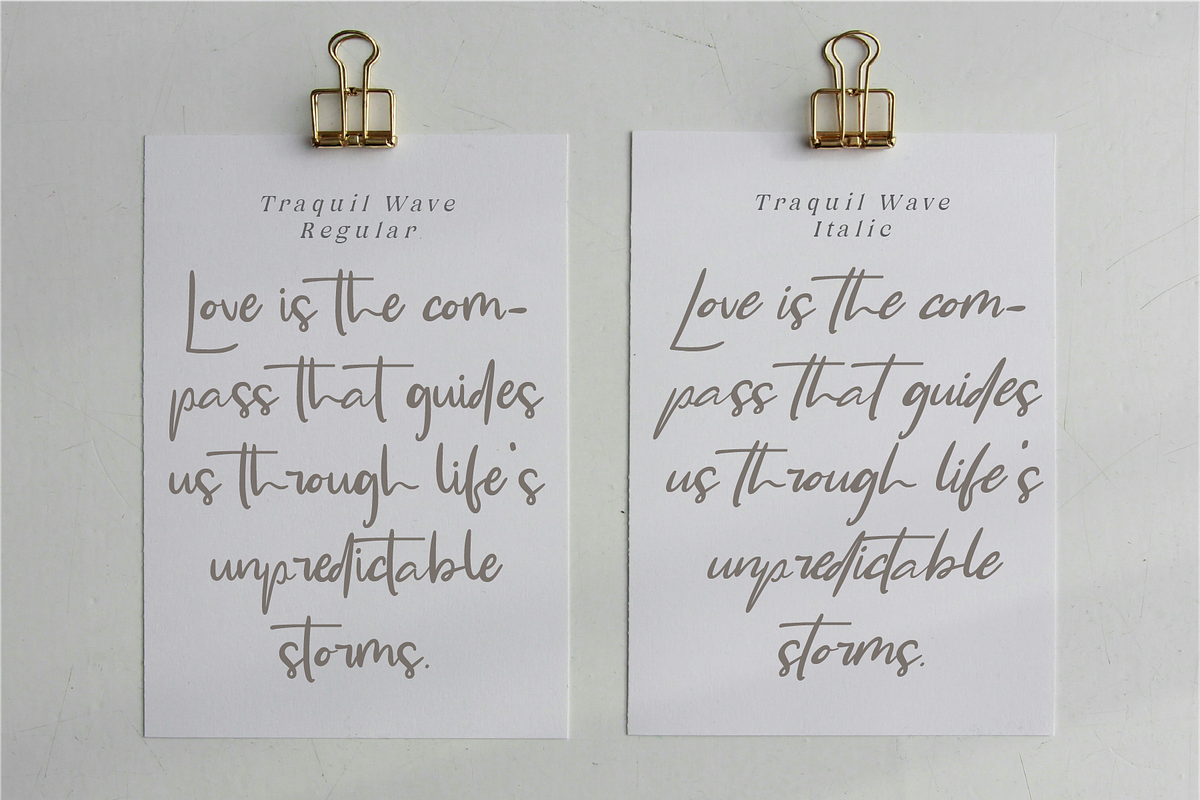 Traquil Wave
Regular
Love is the com-
pass that guides
us through life's
unpredictable
storms.
Traquil Wave
Italic
Love is the com-
pass that guides
us through life's
unpredictable
storms.